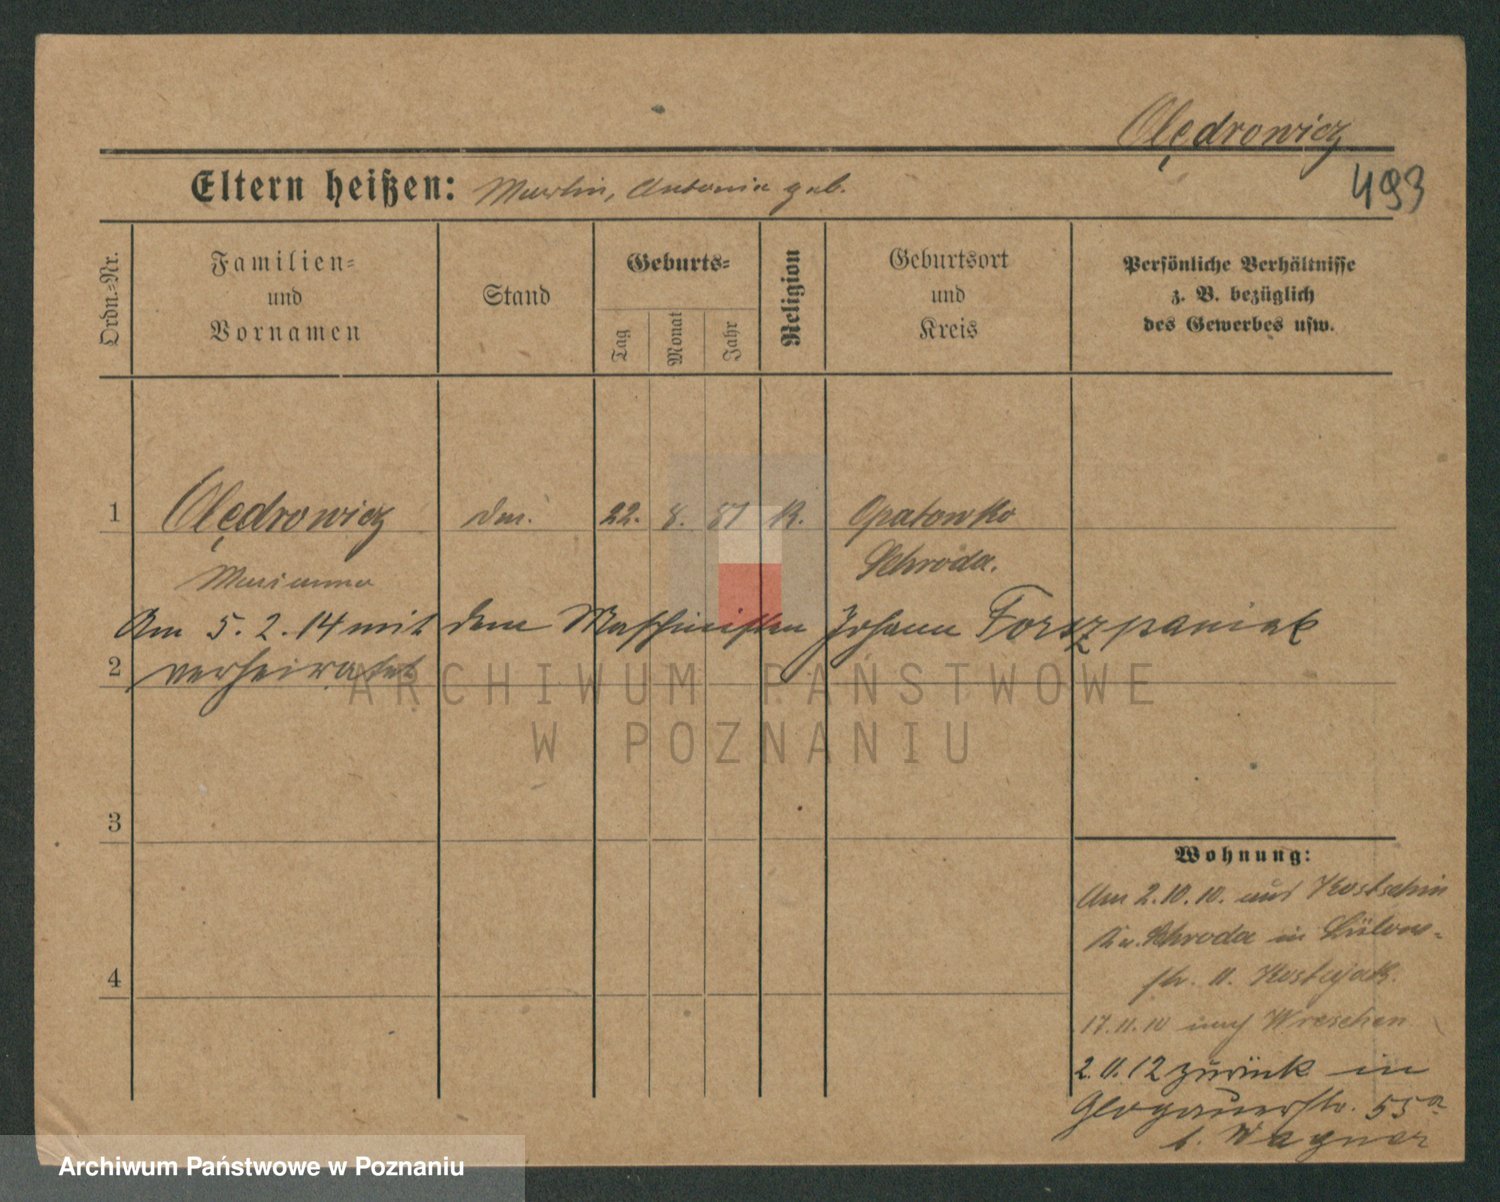 Olędrowicz
493
Eltern heißen: Martin, Antonia geb.
Ordn.-Nr.
Familien-
und
Vornamen
Stand
Geburts-
Tag
Monat
Jahr
Religion
Geburtsort
und
Kreis
Persönliche Verhältnisse
z. B. bezüglich
des Gewerbes usw.
1 Olędrowicz 22. 8. K. Opatowko
Marianna Schroda.
Am 5. 2. 14 mit dem Maschinisten Johann
2 verheiratet
3
4
Wohnung:
Am 2.10.10. aus Kostschin
Kr. Schroda in
str. 11.
17.11.10 nach Wreschen
2.11.12 zurück in
Glogauerstr. 55a
b. Wagner
ARCHIWUM PAŃSTWOWE
W POZNANIU
Archiwum Państwowe w Poznaniu